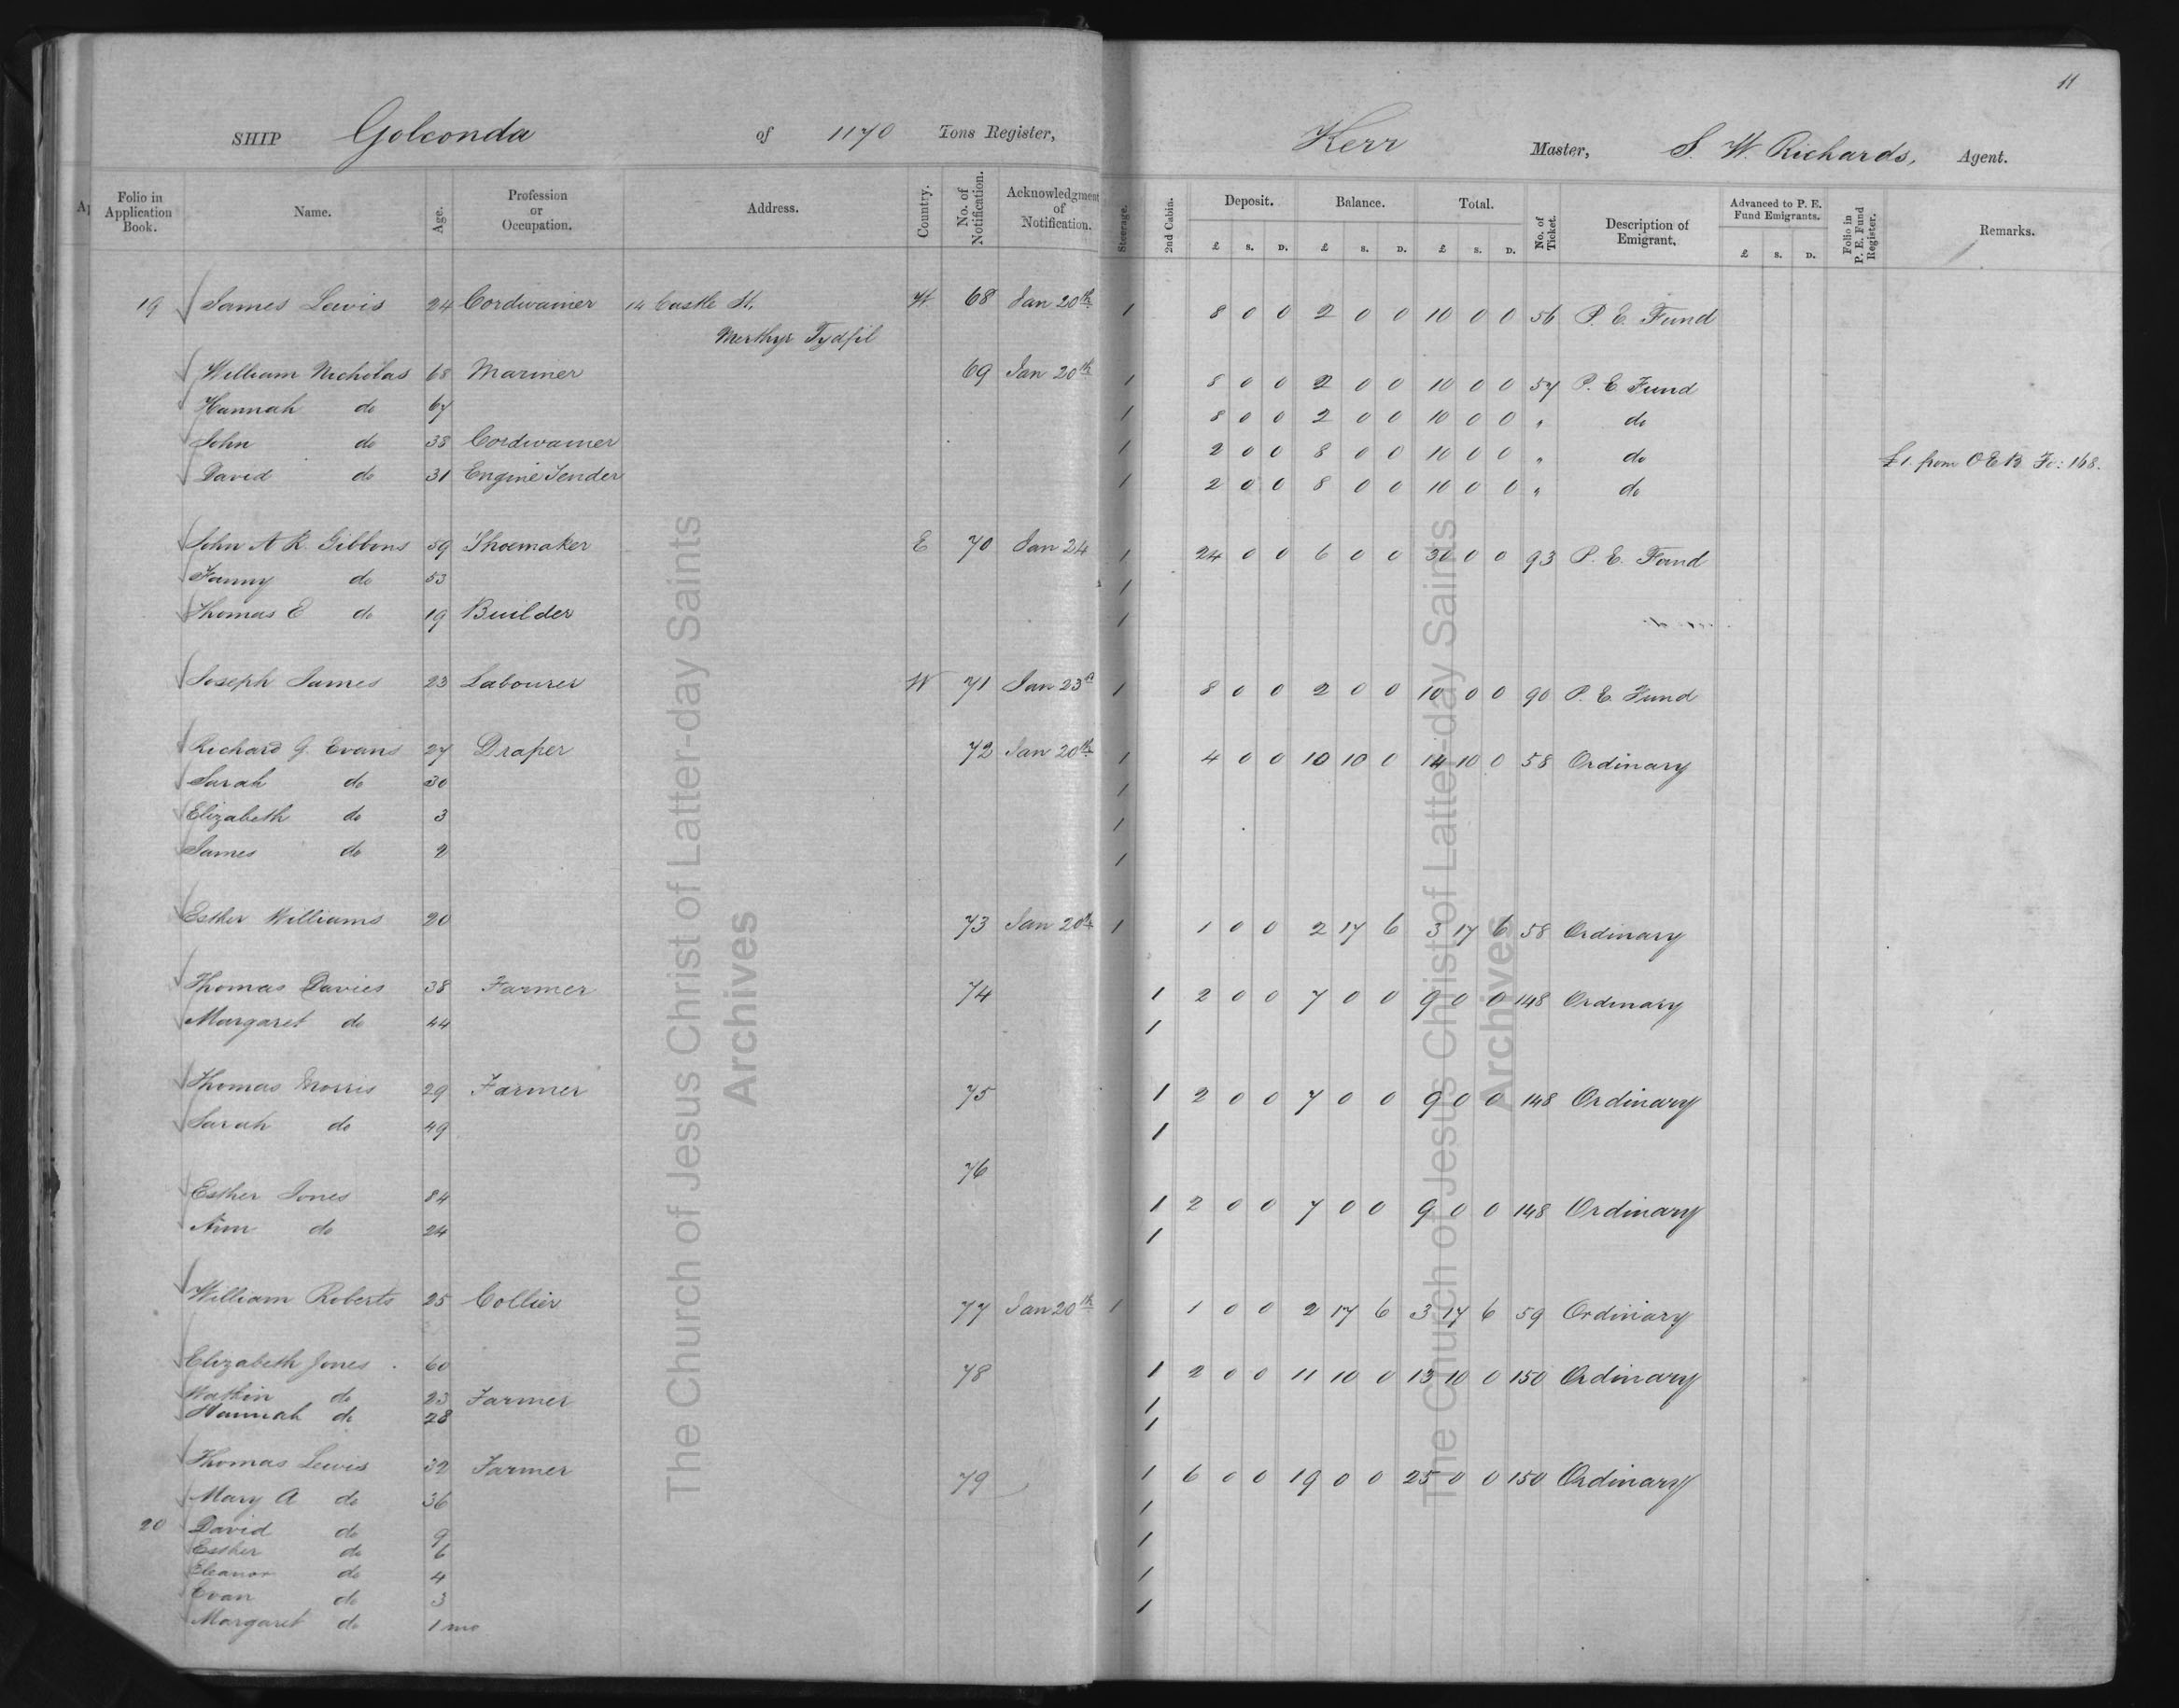 11
SHIP Golconda of 1170 Tons Register, Kerr Master, S. W. Richards, Agent.
Folio in Application Book. Name. Age. Profession or Occupation. Address. Country. No. of Notification. Acknowledgment of Notification. Steerage. 2nd Cabin. Deposit. £ s. D. Balance. £ s. D. Total. £ s. D. No. of Ticket. Description of Emigrant. Advanced to P. E. Fund Emigrants. £ s. D. Folio in P. E. Fund Register. Remarks.
19 James Lewis 24 Cordwainer 14 Castle St. W 68 Jan 20th 1 8 0 0 2 0 0 10 0 0 56 P. E. Fund
Merthyr Tydfil
William Nicholas 68 Mariner 69 Jan 20th 1 8 0 0 2 0 0 10 0 0 57 P. E. Fund
Hannah do 67 1 8 0 0 2 0 0 10 0 0 " do
John do 38 Cordwainer 1 2 0 0 8 0 0 10 0 0 " do £1. from O E B. Fo: 168.
David do 31 Engine Tender 1 2 0 0 8 0 0 10 0 0 " do
John A R. Gibbons 59 Shoemaker E 70 Jan 24 1 24 0 0 6 0 0 30 0 0 93 P. E. Fund
Fanny do 53 1
Thomas E do 19 Builder 1
Joseph James 23 Labourer W 71 Jan 23d 1 8 0 0 2 0 0 10 0 0 90 P. E. Fund
Richard G. Evans 27 Draper 72 Jan 20th 1 4 0 0 10 10 0 14 10 0 58 Ordinary
Sarah do 30 1
Elizabeth do 3 1
James do 2 1
Esther Williams 20 73 Jan 20th 1 1 0 0 2 17 6 3 17 6 58 Ordinary
Thomas Davies 38 Farmer 74 1 2 0 0 7 0 0 9 0 0 148 Ordinary
Margaret do 44 1
Thomas Morris 29 Farmer 75 1 2 0 0 7 0 0 9 0 0 148 Ordinary
Sarah do 49 1
76
Esther Jones 84 1 2 0 0 7 0 0 9 0 0 148 Ordinary
Ann do 24 1
William Roberts 25 Collier 77 Jan 20th 1 1 0 0 2 17 6 3 17 6 59 Ordinary
Elizabeth Jones 60 78 1 2 0 0 11 10 0 13 10 0 150 Ordinary
Watkin do 23 Farmer 1
Hannah do 28 1
Thomas Lewis 32 Farmer 79 1 6 0 0 19 0 0 25 0 0 150 Ordinary
Mary A do 36 1
20 David do 9 1
Esther do 6
Eleanor do 4 1
Evan do 3 1
Margaret do 1 mo
The Church of Jesus Christ of Latter-day Saints
Archives
The Church of Jesus Christ of Latter-day Saints
Archives